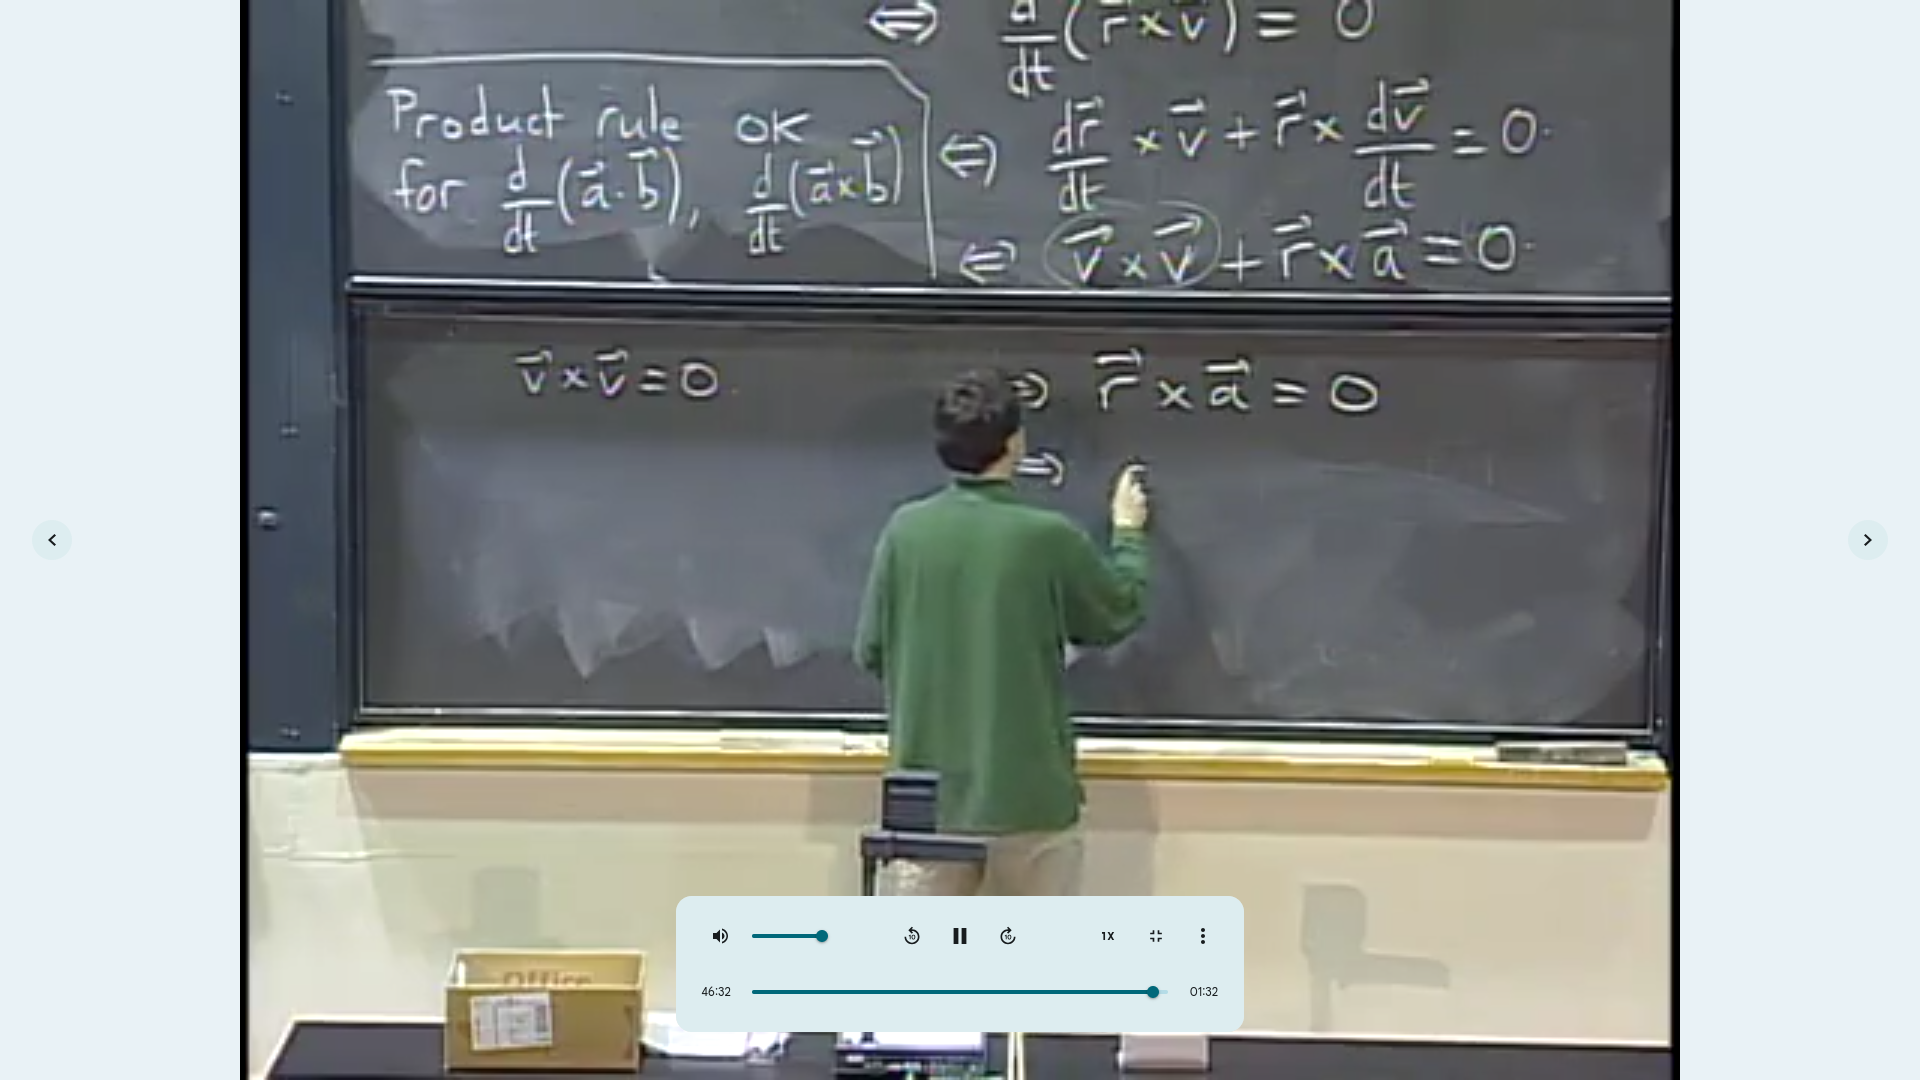 ⇔ d/dt (r⃗ × v⃗) = 0
Product rule OK
for d/dt (a⃗ · b⃗), d/dt (a⃗ × b⃗)
⇔ dr⃗/dt × v⃗ + r⃗ × dv⃗/dt = 0.
⇔ v⃗ × v⃗ + r⃗ × a⃗ = 0.
v⃗ × v⃗ = 0.
⇔ r⃗ × a⃗ = 0
⇔
Office
10
10
1X
46:32
01:32